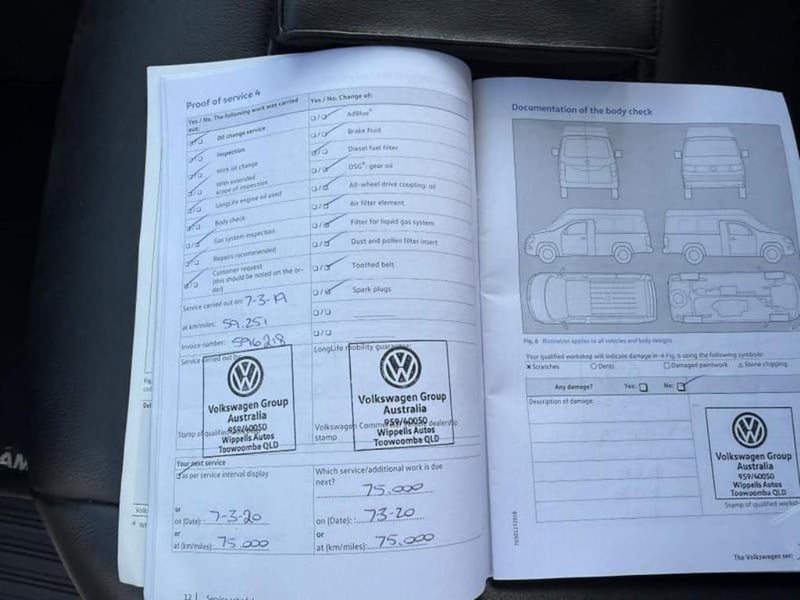 Proof of service 4
Yes / No. The following work was carried out:
Oil change service
Inspection
With oil change
With extended scope of inspection
LongLife engine oil used
Body check
Gas system inspection
Repairs recommended
Customer request
(this should be noted on the or-
der)
Service carried out on: 7-3-19
at km/miles: 59.251
Invoice number: 596218
Service carried out by:
Volkswagen Group
Australia
959/40050
Wippells Autos
Toowoomba QLD
Stamp of qualified
Yes / No. Change of:
AdBlue®
Brake fluid
Diesel fuel filter
DSG®: gear oil
All-wheel drive coupling: oil
Air filter element
Filter for liquid gas system
Dust and pollen filter insert
Toothed belt
Spark plugs
LongLife mobility guarantee:
Volkswagen Group
Australia
959/40050
Wippells Autos
Toowoomba QLD
Volkswagen Comm dealership
stamp
Your next service
as per service interval display
or
on (Date): 7-3-20
or
at (km/miles): 75.000
Which service/additional work is due
next?
75.000
on (Date): 73-20
or
at (km/miles): 75,000
12 | Service
Documentation of the body check
Fig. 6 Illustration applies to all vehicles and body designs
Your qualified workshop will indicate damage in → Fig. 6 using the following symbols:
× Scratches ○ Dents □ Damaged paintwork △ Stone chipping
Any damage? Yes: No:
Description of damage:
Volkswagen Group
Australia
959/40050
Wippells Autos
Toowoomba QLD
Stamp of qualified worksh
The Volkswagen ser
AM